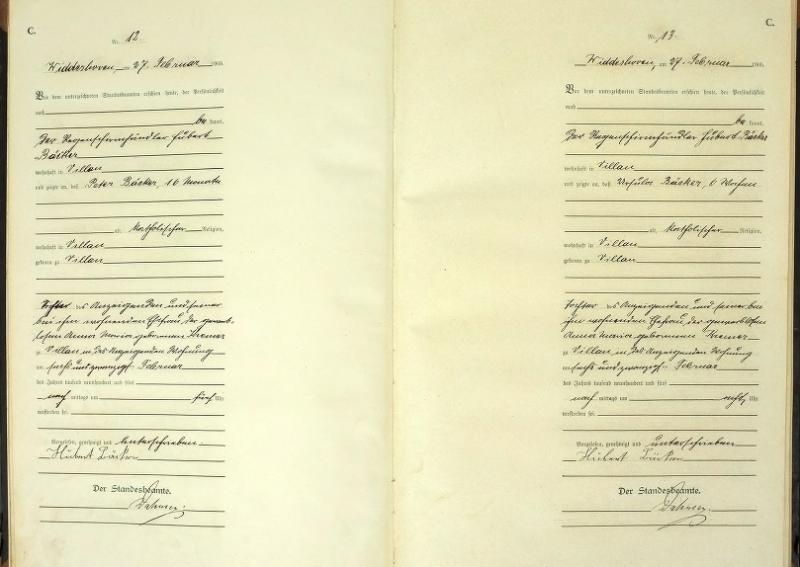 C.
Nr. 12
Widdeshoven, am 27. Februar 190
Vor dem unterzeichneten Standesbeamten erschien heute, der Persönlichkeit
nach
be kannt,
Der Regenschirmhändler Hubert
Bäcker
wohnhaft in Villau
und zeigte an, daß Peter Bäcker, 16 Monate
alt, katholischer Religion,
wohnhaft in Villau
geboren zu Villau
des Anzeigenden und seiner
bei ihm wohnenden Ehefrau, der gewerb-
losen Anna Maria geborenen Kremer
zu Villau in des Anzeigenden Wohnung
am sechs und zwanzigsten Februar
des Jahres tausend neunhundert und fünf
nach mittags um Uhr
verstorben sei.
Vorgelesen, genehmigt und unterschrieben
Hubert Bäcker
Der Standesbeamte.
C.
Nr. 13
Widdeshoven, am 27. Februar 190
Vor dem unterzeichneten Standesbeamten erschien heute, der Persönlichkeit
nach
be kannt,
Der Regenschirmhändler Hubert Bäcker
wohnhaft in Villau
und zeigte an, daß Ursula Bäcker, 6 Wochen
alt, katholischer Religion,
wohnhaft in Villau
geboren zu Villau
Tochter des Anzeigenden und seiner bei
ihm wohnenden Ehefrau der gewerblosen
Anna Maria geborenen Kremer
zu Villau, in des Anzeigenden Wohnung
am sechs und zwanzigsten Februar
des Jahres tausend neunhundert und fünf
nach mittags um acht Uhr
verstorben sei.
Vorgelesen, genehmigt und unterschrieben
Hubert Bäcker
Der Standesbeamte.